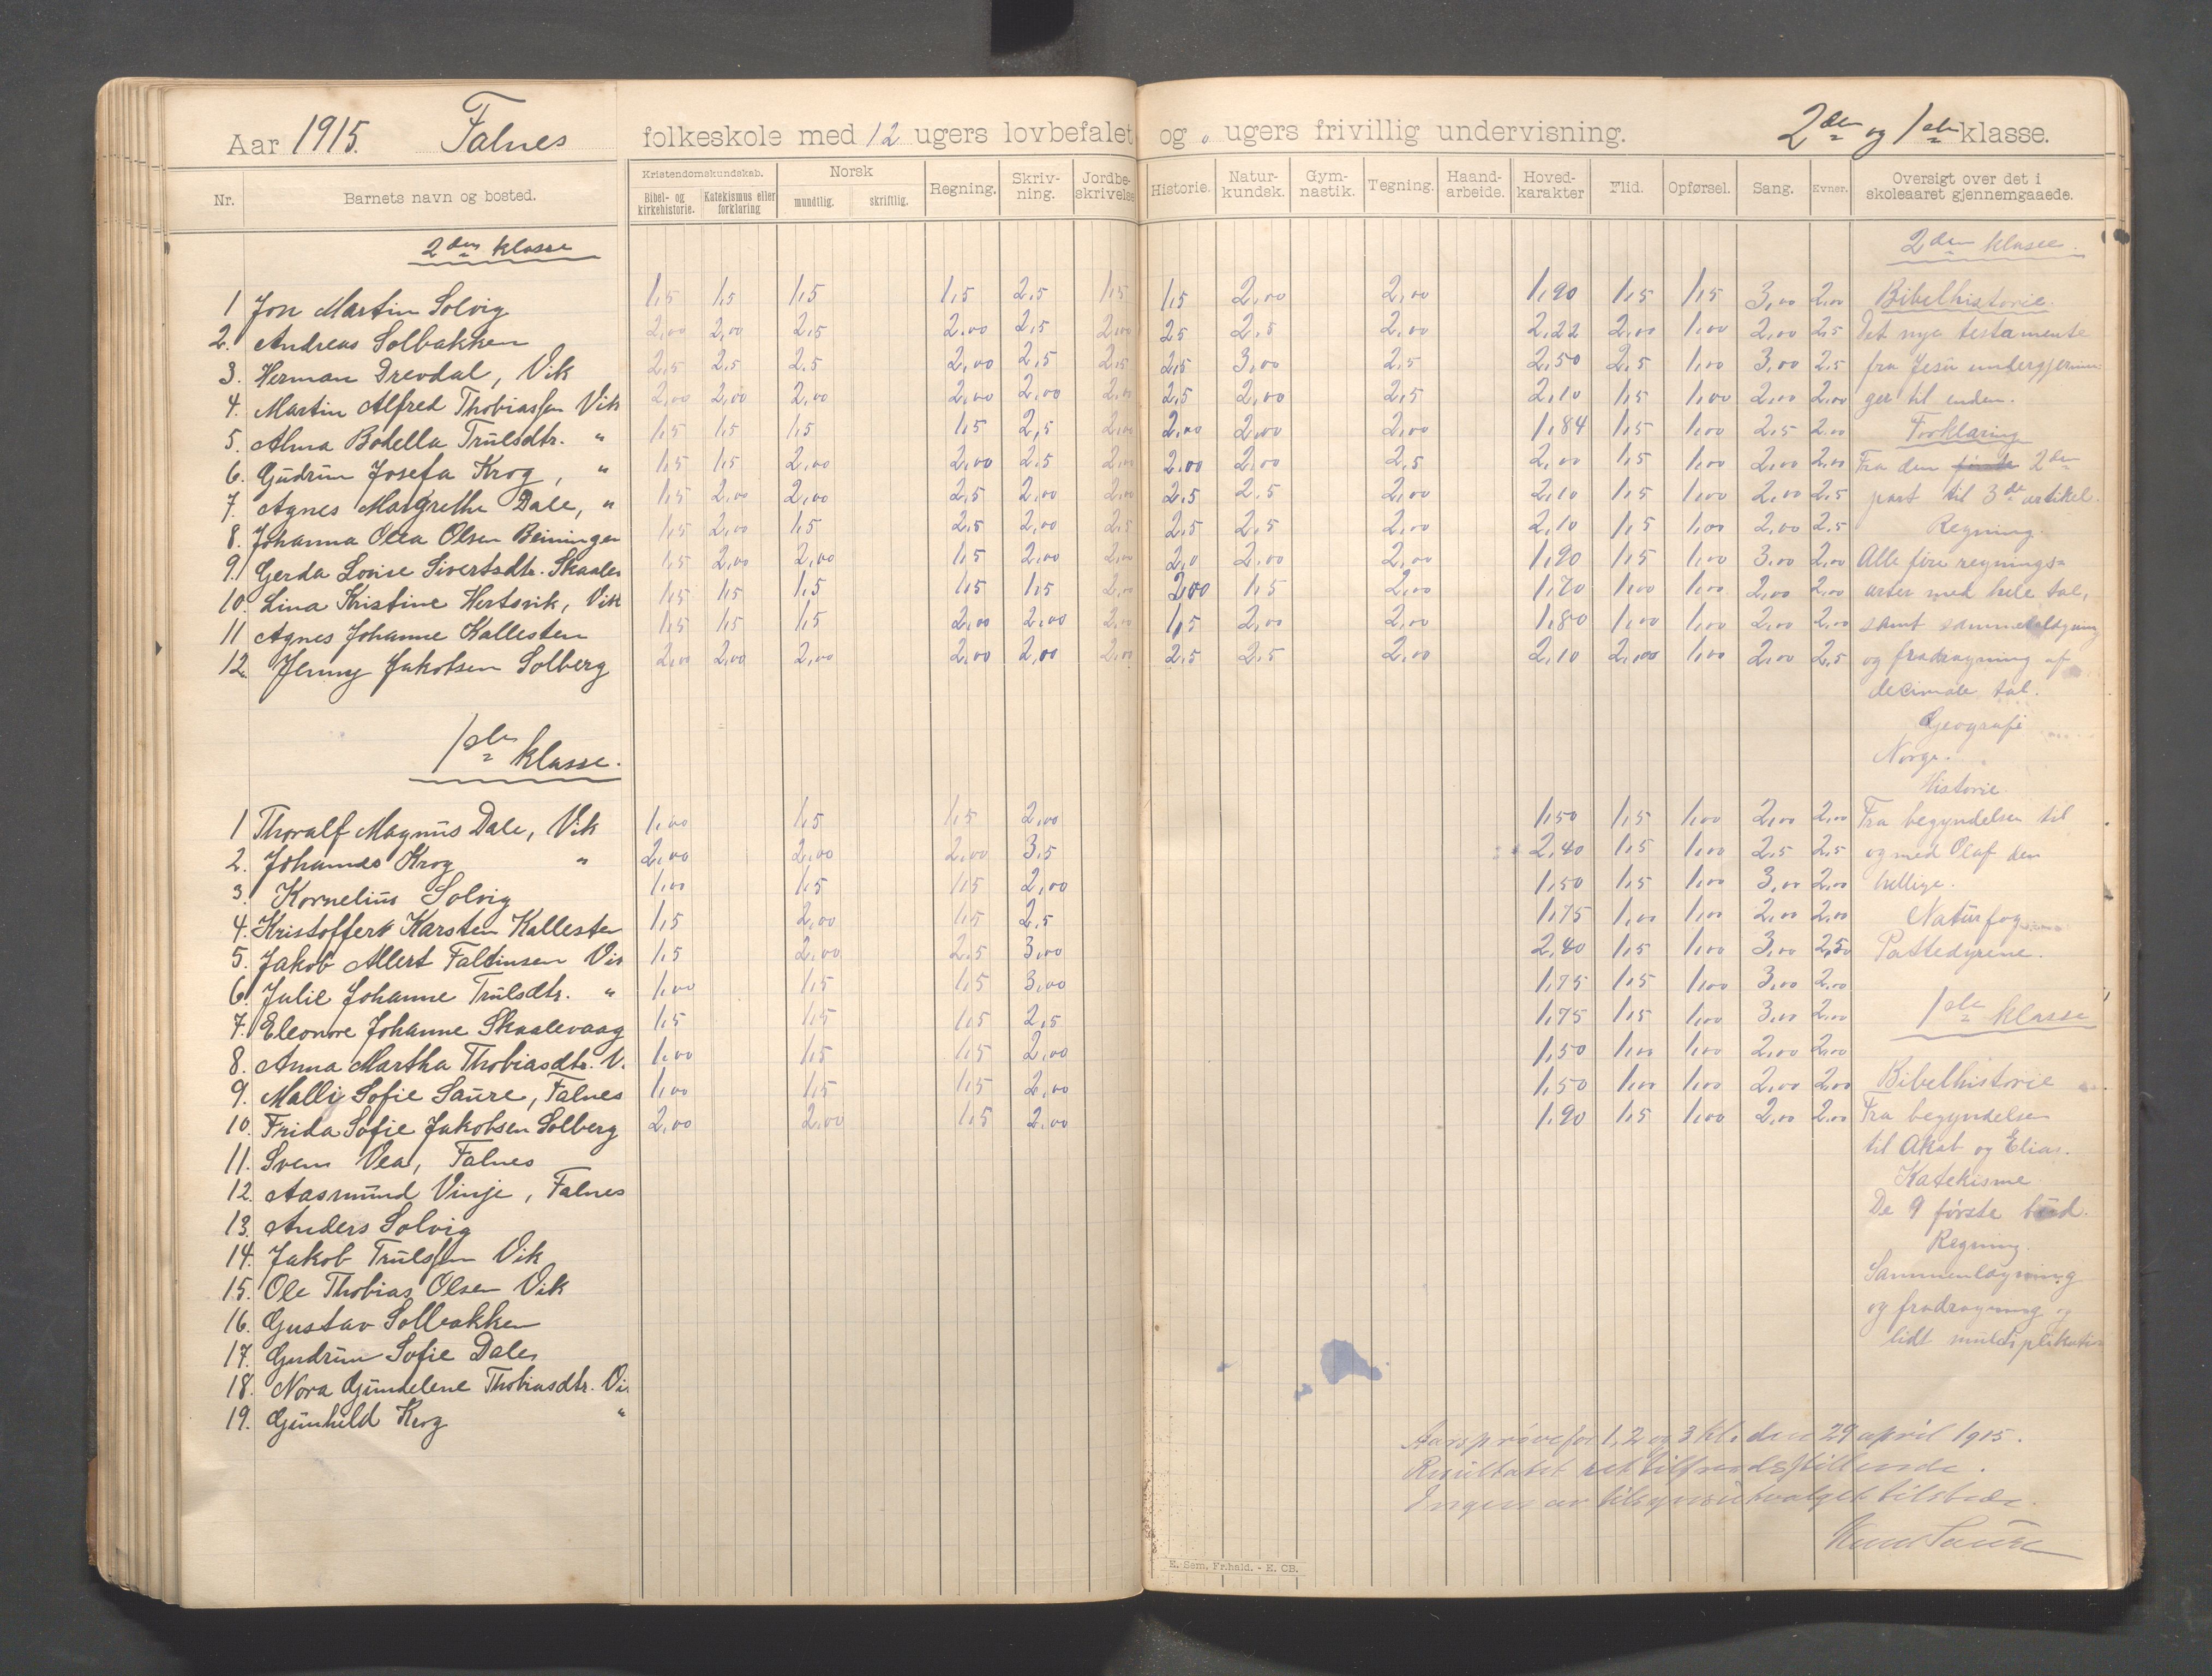 Aar 1915. Falnes folkeskole med 12 ugers lovbefalet og 0 ugers frivillig undervisning. 2den og 1ste klasse.
Nr. Barnets navn og bosted. Kristendomskundskab. Bibel- og kirkehistorie. Katekismus eller forklaring Norsk mundtlig. skriftlig. Regning. Skriv-ning. Jordbe-skrivelse Historie. Natur-kundsk. Gym-nastik. Tegning. Haand-arbeide. Hoved-karakter Flid. Opførsel. Sang. Evner. Oversigt over det i skoleaaret gjennemgaaede.
2den klasse
1 Jon Martin Solvig 1,5 1,5 1,5 1,5 2,5 1,5 1,5 2,00 2,00 1,90 1,5 1,5 3,00 2,00
2. Andreas Solbakken 2,00 2,00 2,5 2,00 2,5 2,00 2,5 2,5 2,00 2,22 2,00 1,00 2,00 2,5
3. Herman Drevdal, Vik 2,5 2,5 2,5 2,00 2,5 2,5 2,5 3,00 2,5 2,50 2,5 1,00 3,00 2,5
4. Martin Alfred Thobiassen Vik 2,00 2,00 2,00 2,00 2,00 2,00 2,5 2,00 2,5 2,10 1,5 1,00 2,00 2,00
5. Alma Bolella Trulsdtr. " 1,5 1,5 1,5 1,5 2,5 2,00 2,00 2,00 2,00 1,84 1,5 1,00 2,5 2,00
6. Gudrun Josefa Krog, " 1,5 1,5 2,00 2,00 2,5 2,00 2,00 2,00 2,5 2,00 1,5 1,00 2,00 2,00
7. Agnes Margrethe Dale, " 1,5 2,00 2,00 2,5 2,00 2,00 2,5 2,5 2,00 2,10 1,5 1,00 2,00 2,5
8. Johanna Olea Olsen 1,5 2,00 1,5 2,5 2,00 2,5 2,5 2,5 2,00 2,10 1,5 1,00 2,00 2,5
9. Gerda Lovise Sivertsdtr. Skaalev 1,5 2,00 2,00 1,5 2,00 2,00 2,0 2,00 2,00 1,90 1,5 1,00 3,00 2,00
10. Lina Kristine Hertsvik, Vik 1,5 1,5 1,5 1,5 1,5 2,00 2,00 1,5 2,00 1,70 1,00 1,00 2,00 2,00
11 Agnes Johanne Kallesten 1,5 1,5 1,5 2,00 2,00 2,00 1,5 2,00 2,00 1,80 1,00 1,00 2,00 2,00
12. Jenny Jakobsen Solberg 2,00 2,00 2,00 2,00 2,00 2,00 2,5 2,5 2,00 2,10 2,00 1,00 2,00 2,5
1ste klasse.
1 Thoralf Magnus Dale, Vik 1,00 1,5 1,5 2,00 1,50 1,5 1,00 2,00 2,00
2. Johannes Krog " 2,00 2,00 2,00 3,5 2,40 1,5 1,00 2,5 2,5
3. Kornelius Solvig 1,00 1,5 1,5 2,00 1,50 1,5 1,00 3,00 2,00
4. Kristoffer Karsten Kallesten 1,5 2,00 1,5 2,5 1,75 1,00 1,00 2,00 2,00
5. Jakob Allert Faltinsen Vik 1,5 2,00 2,5 3,00 2,40 1,5 1,00 3,00 2,50
6. Julie Johanne Trulsdtr. " 1,00 1,5 1,5 3,00 1,75 1,5 1,00 3,00 2,00
7. Eleonore Johanne Skaalevaag 1,5 1,5 1,5 2,5 1,75 1,5 1,00 3,00 2,00
8. Anna Martha Thobiasdtr. V. 1,00 1,5 1,5 2,00 1,50 1,00 1,00 2,00 2,00
9. Mally Sofie Saure, Falnes 1,00 1,5 1,5 2,00 1,50 1,00 1,00 2,00 2,00
10. Frida Sofie Jakobsen Solberg 2,00 2,00 1,5 2,00 1,90 1,5 1,00 2,00 2,00
11. Svein Vea, Falnes
12. Aasmund Vinje, Falnes
13. Anders Solvig
14. Jakob Trulssen Vik
15. Ole Thobias Olsen Vik
16. Gustav Solbakken
17. Gudrun Sofie Dale
18. Nora Gundelene Thobiasdtr. Vi
19. Gunhild Krog "
2den klasse.
Bibelhistorie.
Det nye testamente
fra Jesu undergjernin-
ger til enden.
Forklaring
Fra den første 2den
part til 3de artikel.
Regning
Alle fire regnings=
arter med hele tal,
samt sammenlægning
og fradragning af
decimale tal.
Geografi
Norge.
Historie.
Fra begyndelsen til
og med Olaf den
hellige.
Naturfag
Pattedyrene.
1ste klasse
Bibelhistorie
Fra begyndelsen
til Akab og Elias.
Katekisme
De 9 første bud.
Regning.
Sammenlægning
og fradragning og
lidt multiplikation
Aarsprøve for 1, 2 og 3 kl. den 29 april 1915.
Resultatet ret tilfredsstillende.
Ingen av tilsynsutvalget tilstede.
Knut Saure
E. Sem, Fr.hald. - E. CB.